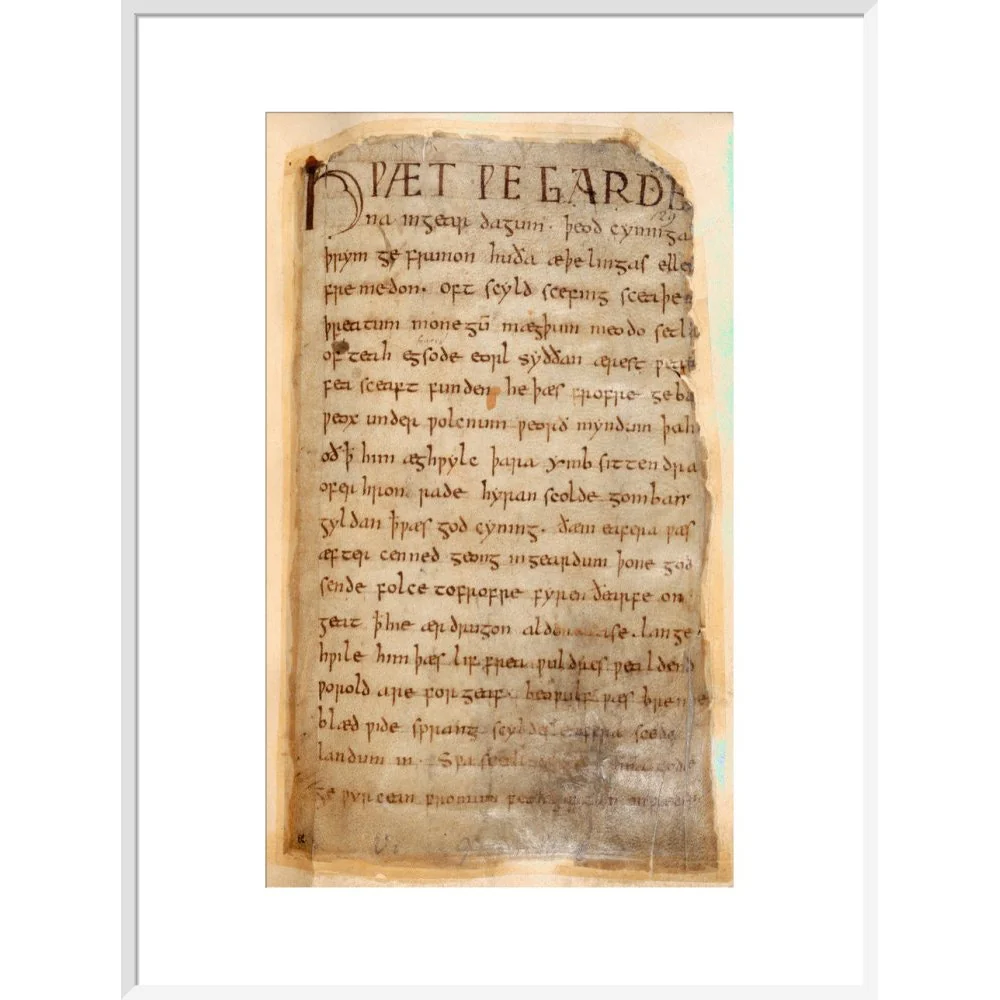 HǷÆT ǷE GARDE
na ingear dagum. þeod cyninga
þrym ge frunon huða æþelingas elle
fre medon. oft scyld scefing sceaþe
þreatum monegū mægþum meodo setla
of teah egsode eorl syððan ærest
fea sceaft funden he þæs frofre geba
ƿeox under ƿolcnum ƿeorð myndum þah
oð ꝥ him æghƿylc þara ymb sittendra
ofer hron rade hyran scolde gomban
gyldan ꝥ ƿæs god cyning. ðæm eafera ƿæs
æfter cenned geong in geardum þone god
sende folce tofrofre fyren ðearfe on
geat ꝥ hie ær drugon aldor ase. lange
hƿile him þæs lif frea ƿuldres ƿealdend
ƿorold are for geaf. beoƿulf ƿæs breme
blæd ƿide sprang scyldes eafera scede
landum in. Sƿa
ge ƿyrcean fromum